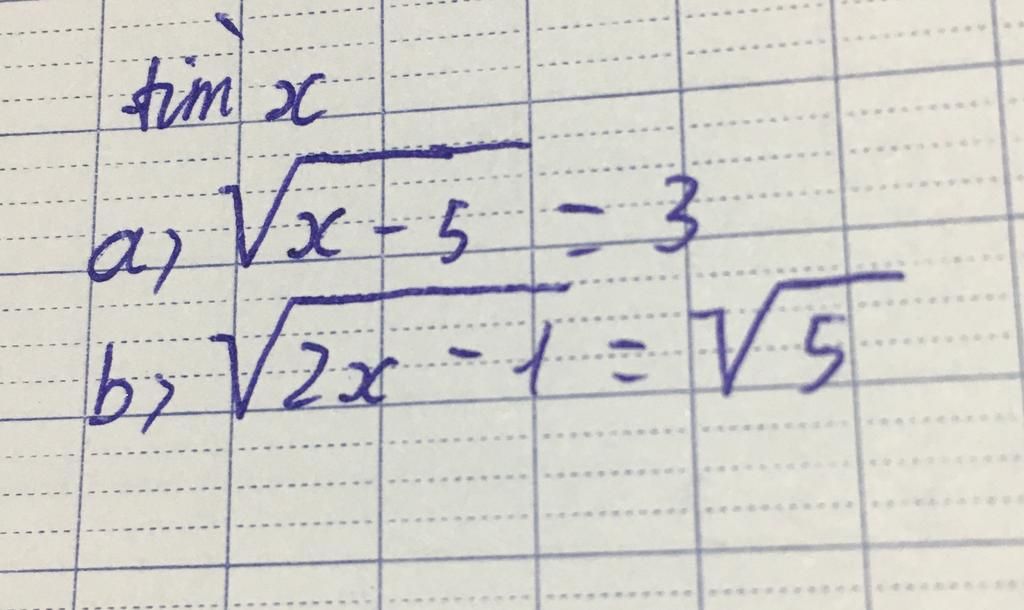 tìm x
a) √(x - 5) = 3
b) √(2x - 1) = √5